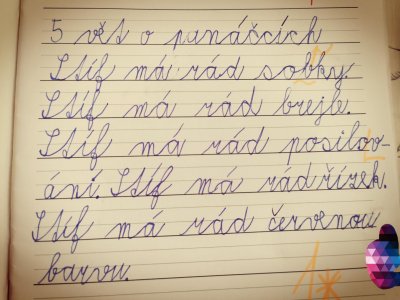 5 vět o panáčcích
Stíf má rád sobky.
Stíf má rád brejle.
Stíf má rád posilov-
ání. Stíf má rád řízek.
Stíf má rád červenou
barvu.
1*